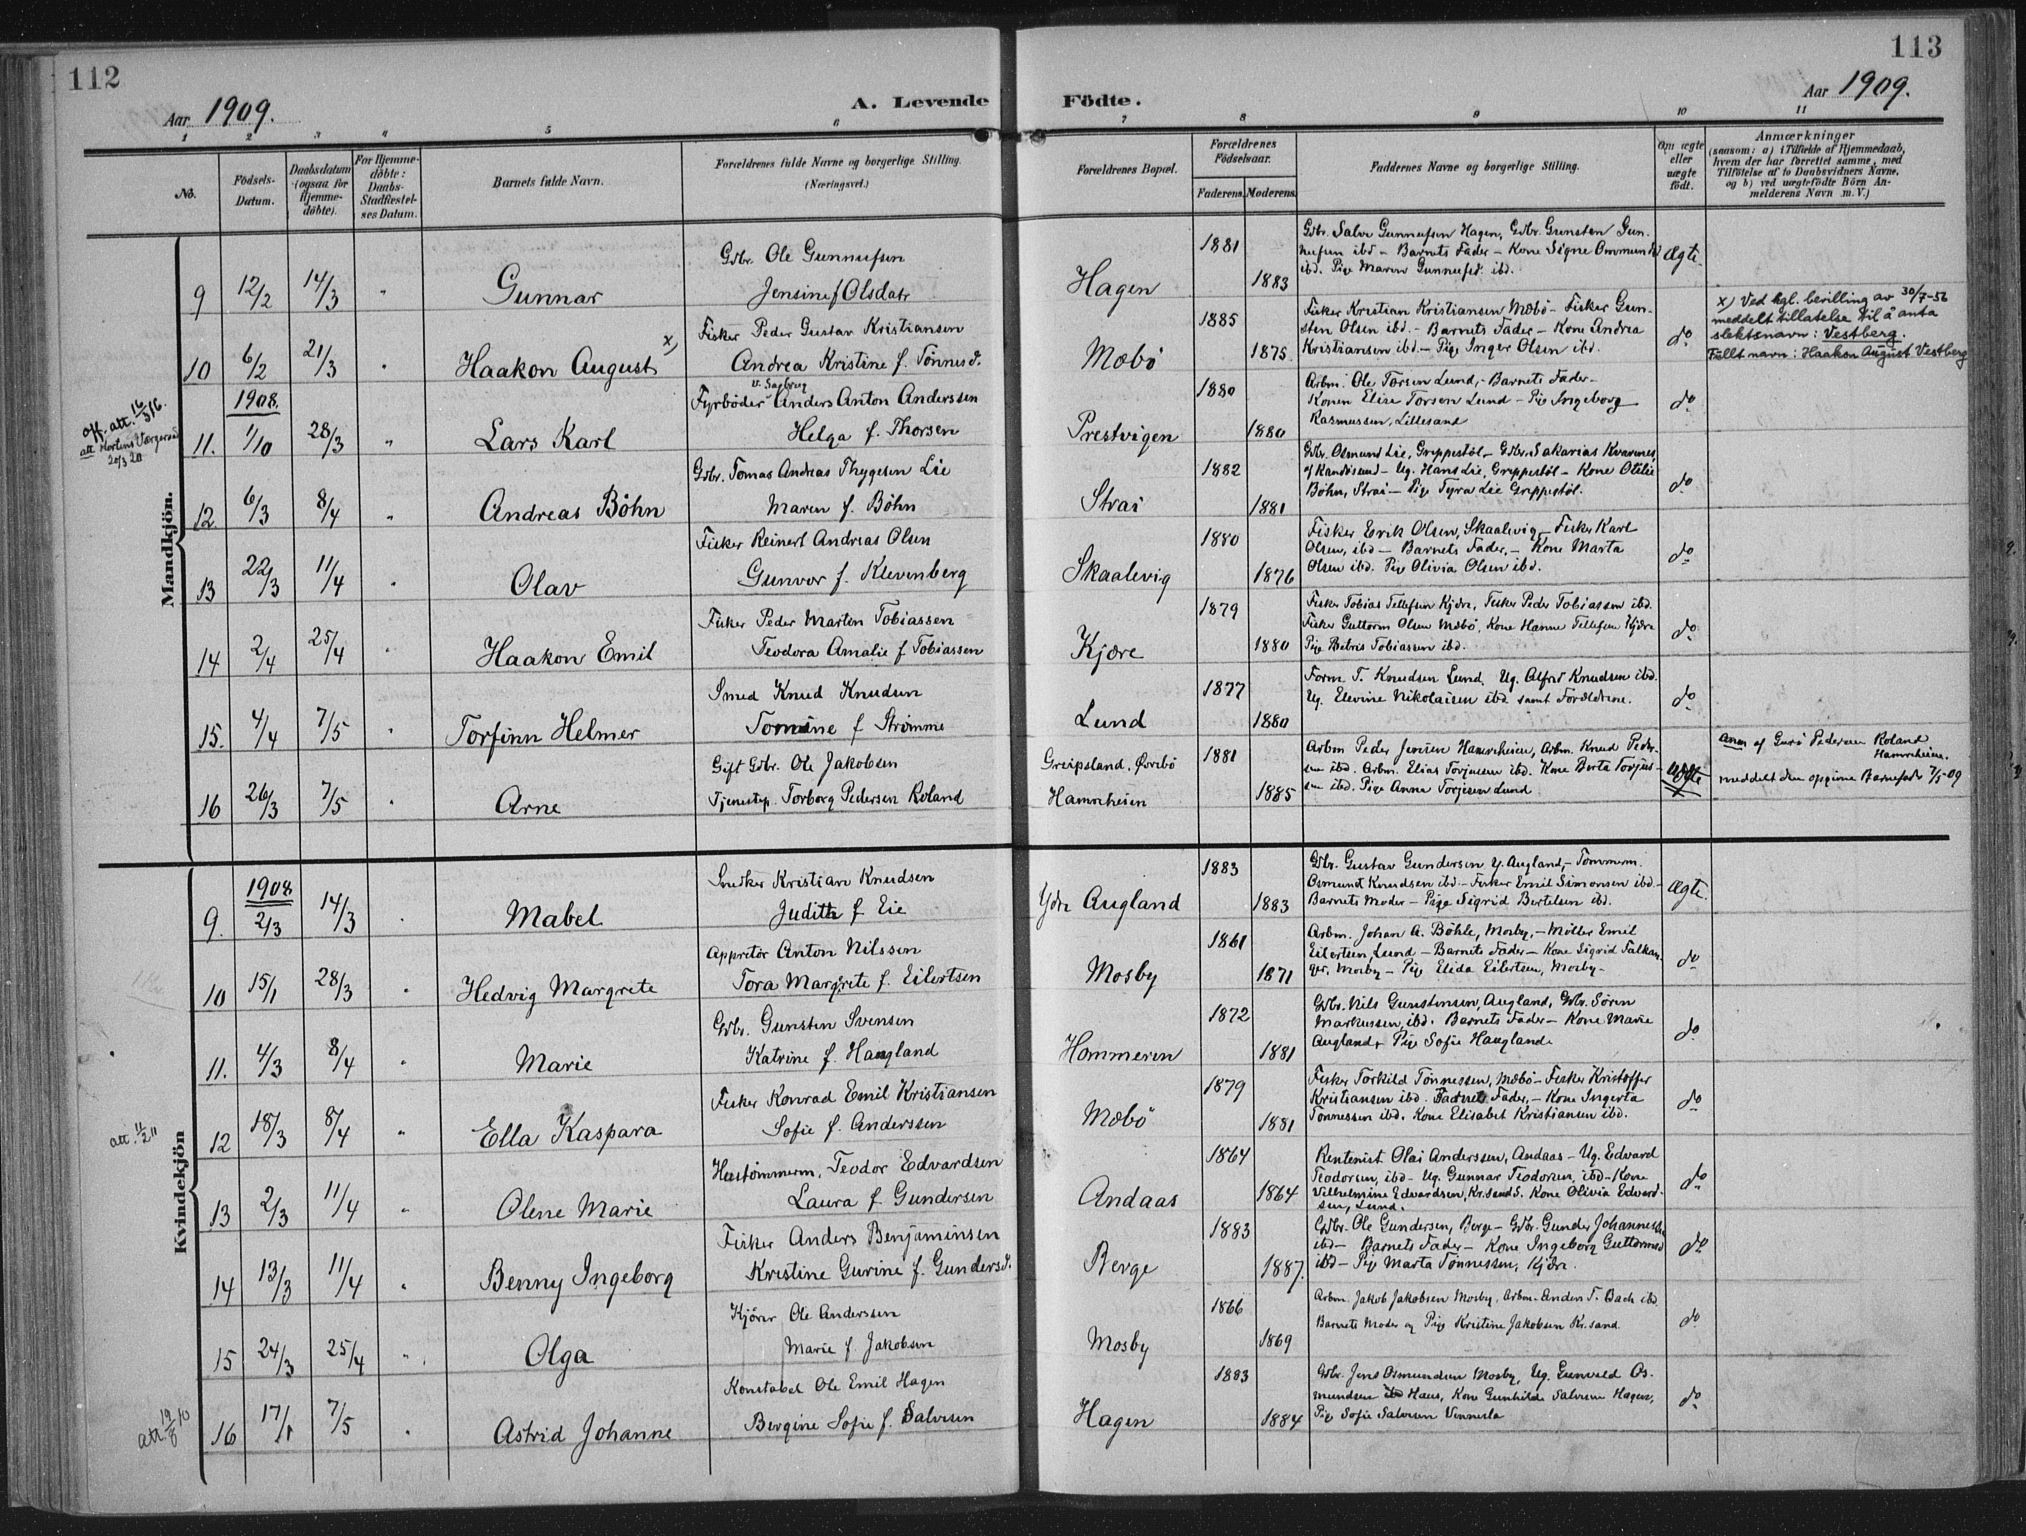 112
Aar 1909.
A. Levende
1 2 3 4 5 6
No.
Fødsels-
Datum.
Daabsdatum
(ogsaa for
Hjemme-
døbte).
For Hjemme-
døbte:
Daabs-
Stadfæstel-
ses Datum.
Barnets fulde Navn.
Forældrenes fulde Navne og borgerlige Stilling.
(Næringsvei.)
Mandkjøn.
Gbr. Ole Gunnufsen
9 12/2 14/3 " Gunnar Jensine f Olsdatr
Fisker Peder Gustav Kristiansen
10 6/2 21/3 " Haakon August x) Andrea Kristine f. Tønnesd.
1908.
v. Sagbrug
Fyrbøder Anders Anton Anderssen
off. att. 16/3 16.
att Hortens Værgeraad
20/3 20
11. 1/10 28/3 " Lars Karl Helga f. Thorsen
Gbr. Tomas Andreas Thygesen Lie
12 6/3 8/4 " Andreas Bøhn Maren f. Bøhn
Fisker Reinert Andreas Olsen
13 22/3 11/4 " Olav Gunvor f. Klevenberg
Fisker Peder Martin Tobiassen
14 2/4 25/4 " Haakon Emil Teodora Amalie f Tobiassen
Smed Knud Knudsen
15. 4/4 7/5 " Torfinn Helmer Tomine f Strømme
Gift Gbr. Ole Jakobsen
16 26/3 7/5 " Arne Tjenestep. Torborg Pedersen Roland
Kvindekjön
1908
Snedker Kristian Knudsen
9. 2/3 14/3 " Mabel Judith f Eie
Appretør Anton Nilssen
10 15/1 28/3 " Hedvig Margrete Tora Margrete f. Eilertsen
Gbr. Gunsten Svensen
11. 4/3 8/4 " Marie Katrine f. Haugland
Fisker Konrad Emil Kristiansen
att. 11/2 11
12 18/3 8/4 " Ella Kaspara Sofie f. Anderssen
Hustømmerm. Teodor Edvardsen
13 2/3 11/4 " Olene Marie Laura f Gundersen
Fisker Anders Benjaminsen
14 13/3 11/4 " Benny Ingeborg Kristine Gurine f. Gundersd.
Kjører Ole Anderssen
15 24/3 25/4 " Olga Marie f. Jakobsen
Konstabel Ole Emil Hagen
att. 19/8 10
16 17/1 7/5 " Astrid Johanne Bergine Sofie f. Salvesen
113
Aar 1909.
Födte.
7 8 9 10 11
Forældrenes Bopæl.
Forældrenes
Fødselsaar.
Faderens. Moderens.
Faddernes Navne og borgerlige Stilling.
Om ægte
eller
uægte
født.
Anmærkninger
(saasom: a) i Tilfælde af Hjemmedaab,
hvem der har forrettet samme, med
Tilføielse af to Daabsvidners Navne,
og b) ved uægtefødte Börn An-
melderens Navn m. V.)
Hagen 1881 1883
Gbr. Salve Gunnufsen Hagen, Gbr. Gunsten Gun-
nufsen ibd – Barnets Fader – Kone Signe Ommunds
ibd. Pige Maren Gunnufsd. ibd.
Ægte.
Mæbø 1885 1875
Fisker Kristian Kristiansen Mæbø – Fisker Gun-
sten Olsen ibd. – Barnets Fader – Kone Andrea
Kristiansen ibd – Pige Inger Olsen ibd.
do
x) Ved kgl. bevilling av 30/7-56
meddelt tillatelse til å anta
slektsnavn: Vestberg.
Fullt navn: Haakon August Vestberg
Prestvigen 1880 1880
Arbm. Ole Torsen Lund, – Barnets Fader –
Konen Elise Torsen Lund – Pige Ingeborg
Rasmussen, Lillesand
do
Strai 1882 1881
Gbr. Osmund Lie, Greppestøl – Gbr. Sakarias Kvarnes,
af Randøsund – Ug. Hans Lie, Greppestøl – Kone Otilie
Bøhn, Strai – Pige Tyra Lie Greppestøl.
do
Skaalevig 1880 1876
Fisker Enrik Olsen, Skaalevig – Fisker Karl
Olsen, ibd – Barnets Fader, – Kone Marta
Olsen ibd. Pige Olivia Olsen ibd.
do
Kjære 1879 1880
Fisker Tobias Tellefsen Kjære, Fisker Peder Tobiassen ibd.
Fisker Guttorm Olsen Mæbø, Kone Hanne Tellefsen Kjære
Pige Betris Tobiassen ibd.
do
Lund 1877 1880
Form T. Knudsen Lund. Ug. Alfred Knudsen ibd.
Ug. Elevine Nikolaisen ibd samt Forældrene.
do
Greipsland, Øvrebø
Hamreheien
1881 1885
Arbm Peder Jensen Hamreheien, Arbm. Knud Peder-
sen ibd. Arbm. Elias Torjussen ibd. Kone Berta Torjus-
sen ibd. Pige Anna Torjesen Lund
uægte
Anm af Guro Pedersen Roland
Hamreheien.
meddelt den opgivne Barnefader 7/5 09
Ydre Augland 1883 1883
Gbr. Gustav Gundersen Y. Augland, – Tømmerm.
Osmund Knudsen ibd – Fisker Emil Simonsen ibd –
Barnets Moder – Pige Sigrid Bertelsen ibd.
Ægte.
Mosby 1861 1871
Arbm. Johan A. Bøhle, Mosby, – Møller Emil
Eilertsen, Lund – Barnets Fader – Kone Sigrid Falkan-
ger, Mosby – Pige Elida Eilertsen, Mosby –
do
Hommeren 1872 1881
Gbr. Nils Gunstensen, Augland, Gbr. Søren
Markussen ibd. Barnets Fader – Kone Marie
Augland, Pige Sofie Haugland.
do
Mæbø 1879 1881
Fisker Torkild Tønnessen, Mæbø – Fisker Kristoffer
Kristiansen ibd. Barnets Fader, – Kone Ingerta
Tønnessen ibd. Kone Elisabet Kristiansen ibd.
do
Andaas 1864 1864
Rentenist Olai Anderssen, Andaas – Ug. Edvard
Teodorsen, ibd – Ug. Gunnar Teodorsen, ibd – Kone
Vilhelmine Edvardsen, Kr.sand S. Kone Olivia Edvard-
sen, Lund.
do
Berge 1883 1887.
Gbr. Ole Gundersen, Berge – Gbr. Gunder Johannessen
ibd – Barnets Fader – Kone Ingeborg Guttormsd
ibd – Pige Marta Tønnessen, Kjære.
do
Mosby 1866 1869
Arbm. Jakob Jakobsen Mosby. Arbm. Anders T. Bach ibd.
Barnets Moder og Pige Kristine Jakobsen Kr.sand.
do
Hagen 1883 1884
Gbr. Jens Osmundsen Mosby, Ug. Gunvald Os-
mundsen ibd Haus, Kone Gunhilde Salvesen Hagen,
Pige Sofie Salvesen Vennesla
do